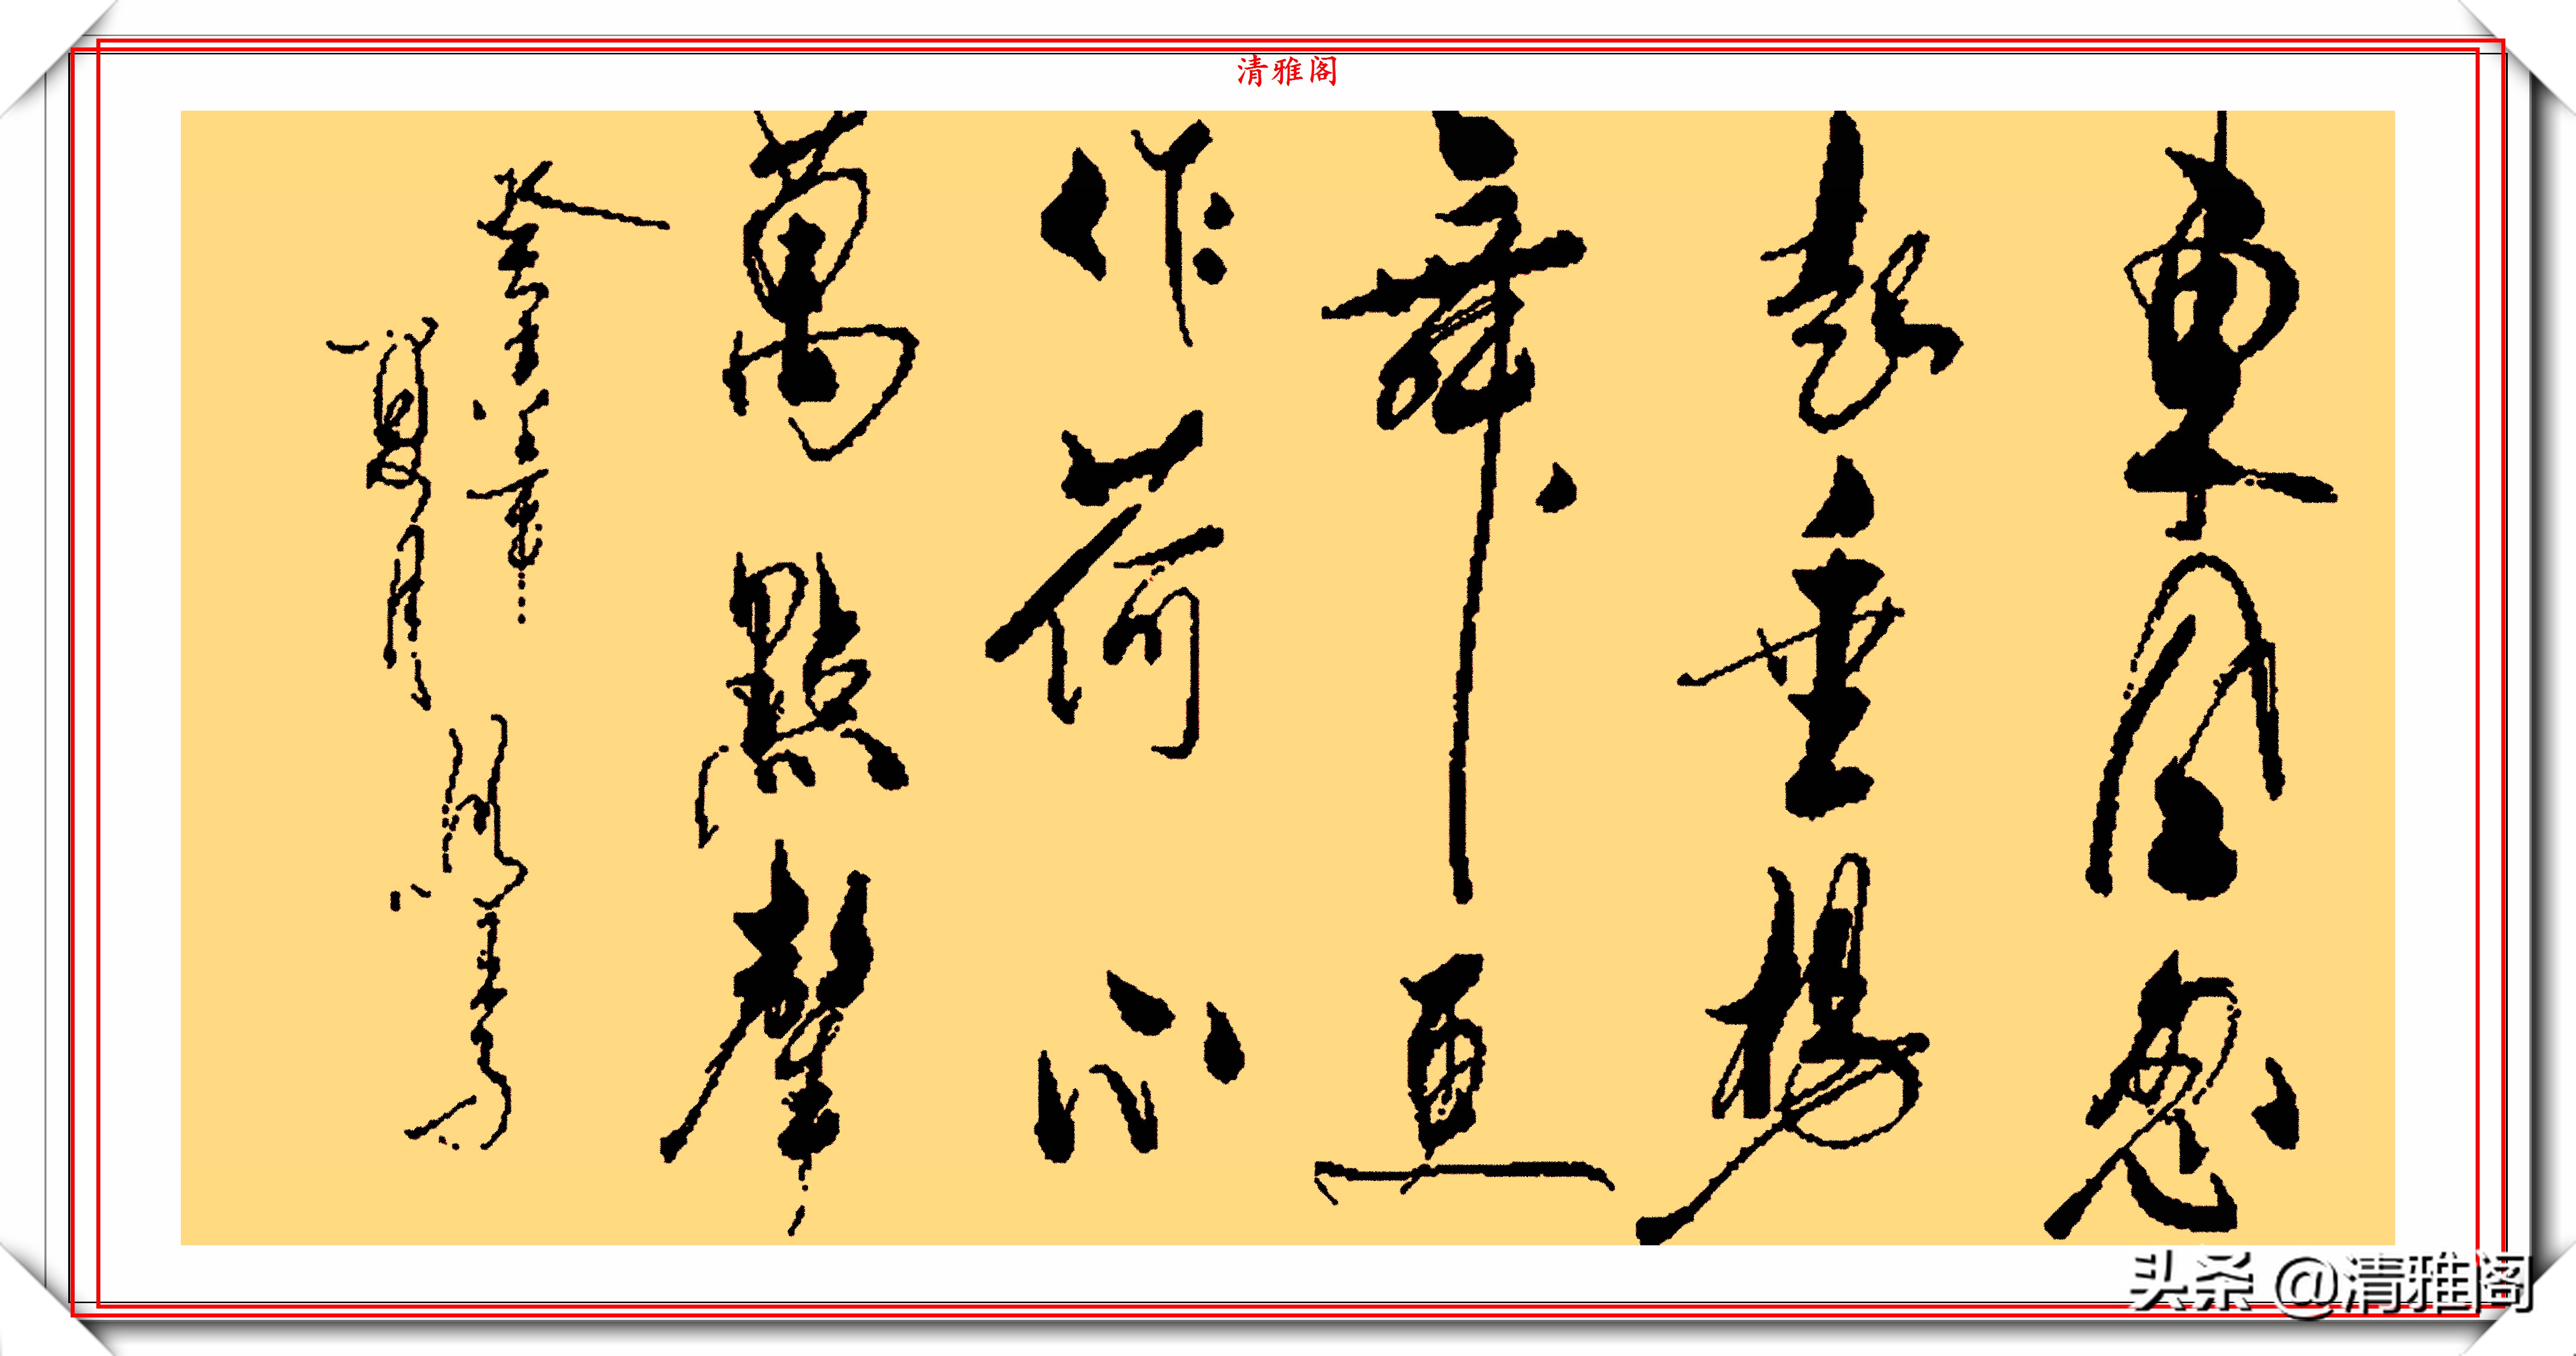 清雅阁
東風忽
起垂楊
舞更
作荷心
萬點聲
癸未
夏月
头条 @清雅阁